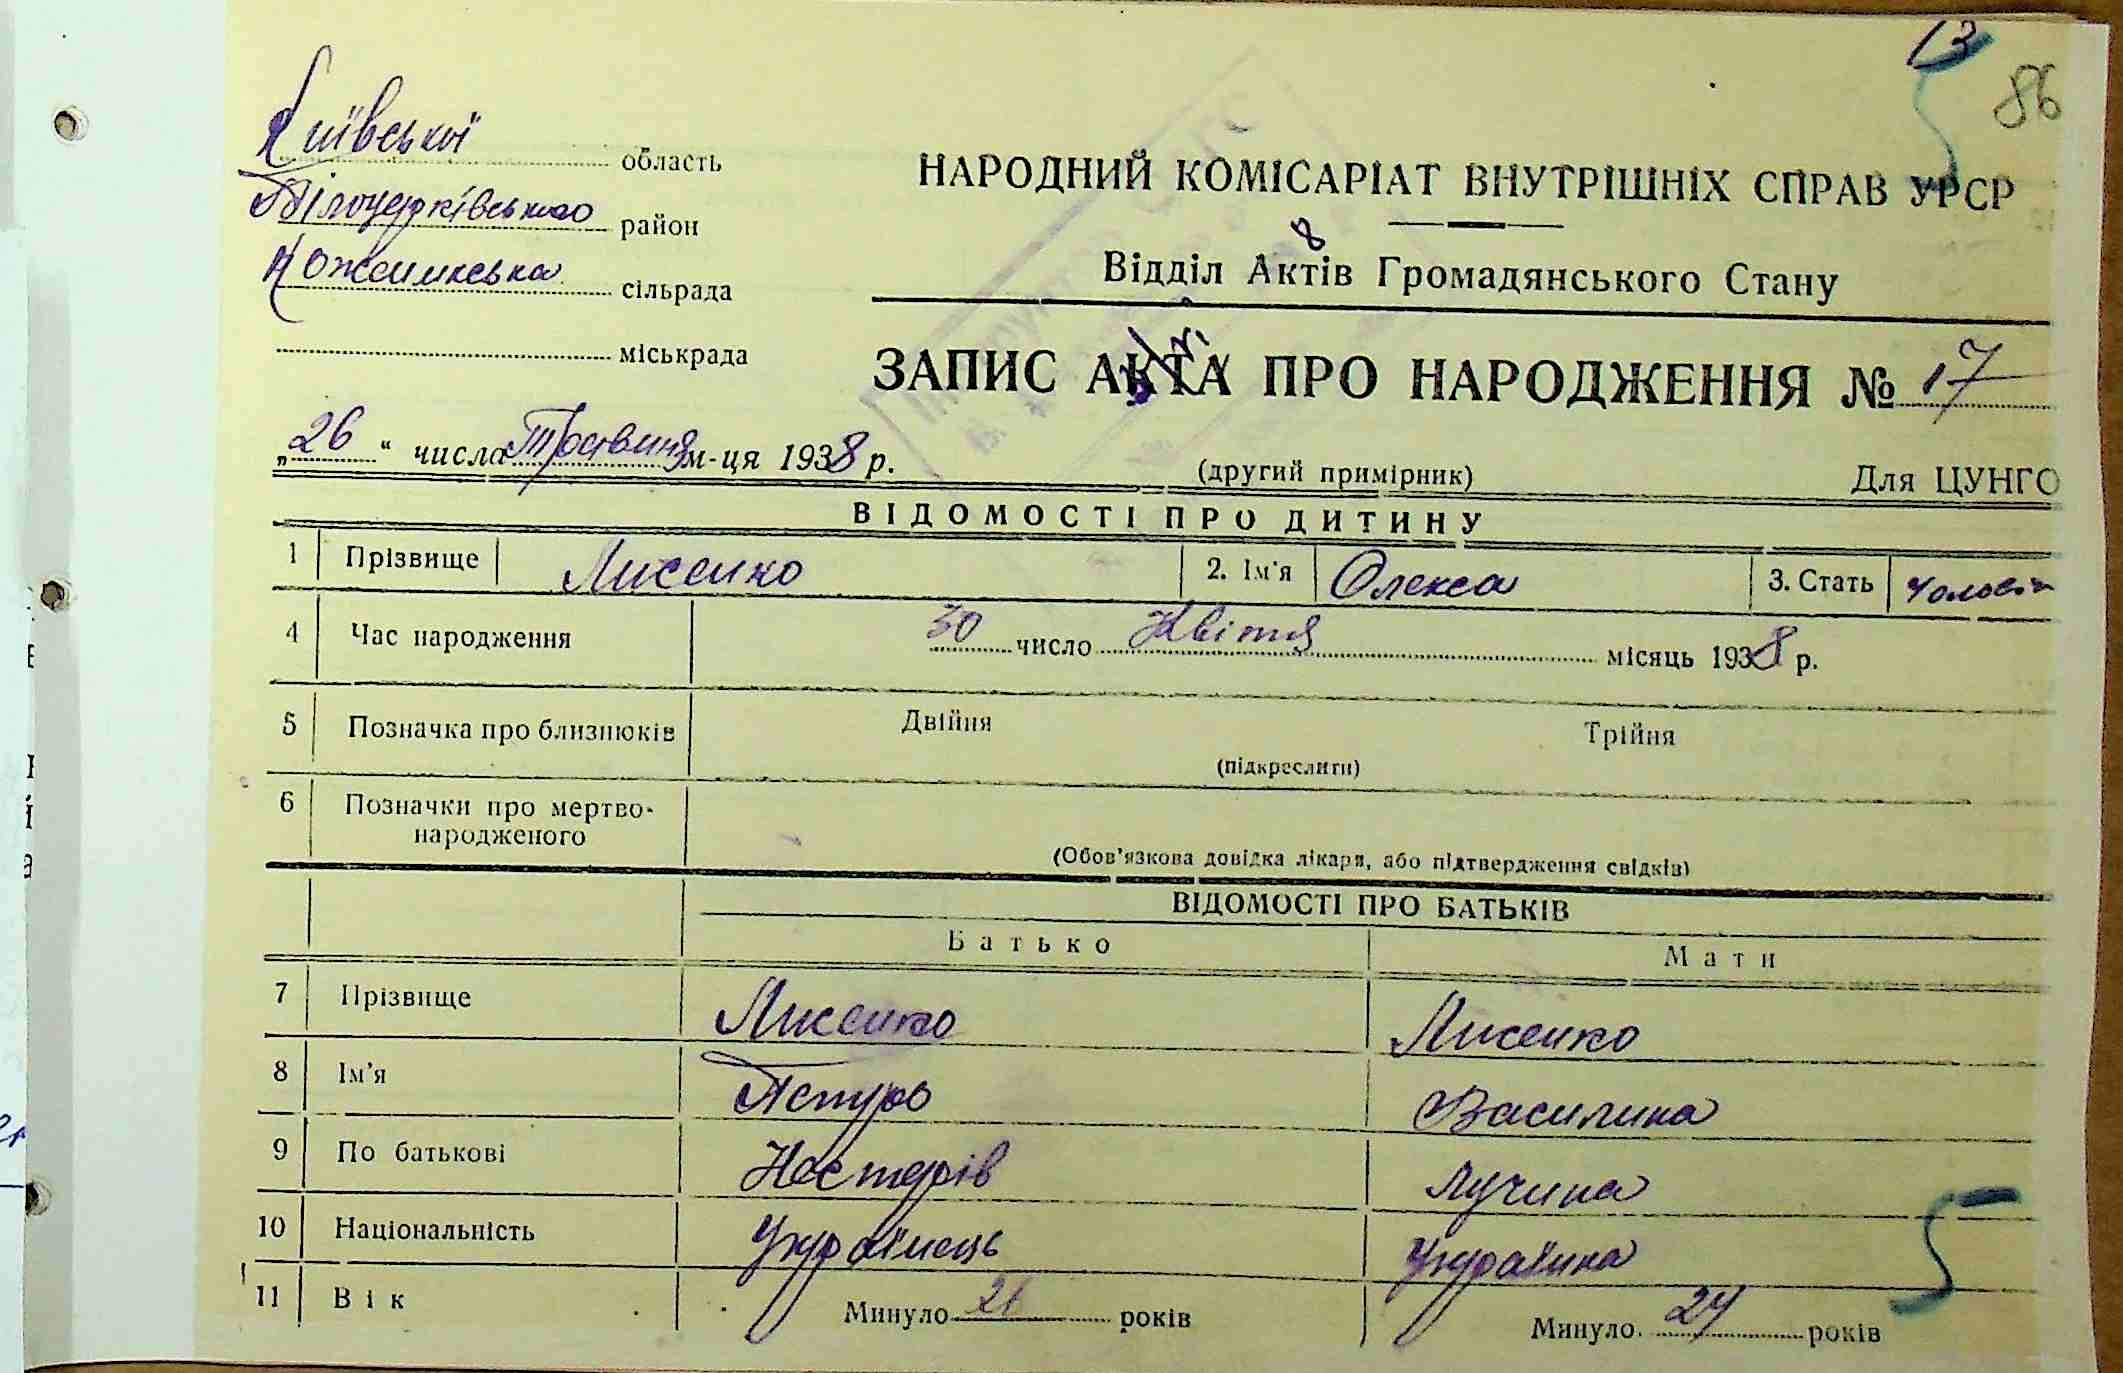 13
86
Київської область
Білоцерківського район
сільрада
міськрада
НАРОДНИЙ КОМІСАРІАТ ВНУТРІШНІХ СПРАВ УРСР
8
Відділ Актів Громадянського Стану
ЗАПИС АКТА ПРО НАРОДЖЕННЯ № 17
„26“ числа Травня м-ця 1938 р.
(другий примірник)
Для ЦУНГО
ВІДОМОСТІ ПРО ДИТИНУ
1 Прізвище Лисенко 2. Ім'я Олекса 3. Стать
4 Час народження 30 число Квітня місяць 1938 р.
5 Позначка про близнюків Двійня Трійня
(підкреслити)
6 Позначки про мертво-
народженого
(Обов'язкова довідка лікаря, або підтвердження свідків)
ВІДОМОСТІ ПРО БАТЬКІВ
Батько Мати
7 Прізвище Лисенко Лисенко
8 Ім'я Василина
9 По батькові Нестерів Лучина
10 Національність Українець Українка
11 Вік Минуло 26 років Минуло 24 років
5